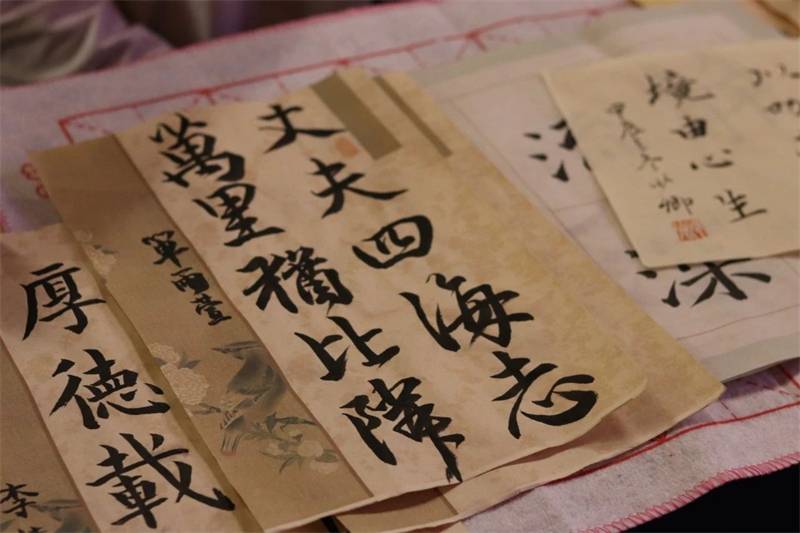 境由心生
深
丈夫四海志
萬里猶比隣
單雨萱
厚德載
李